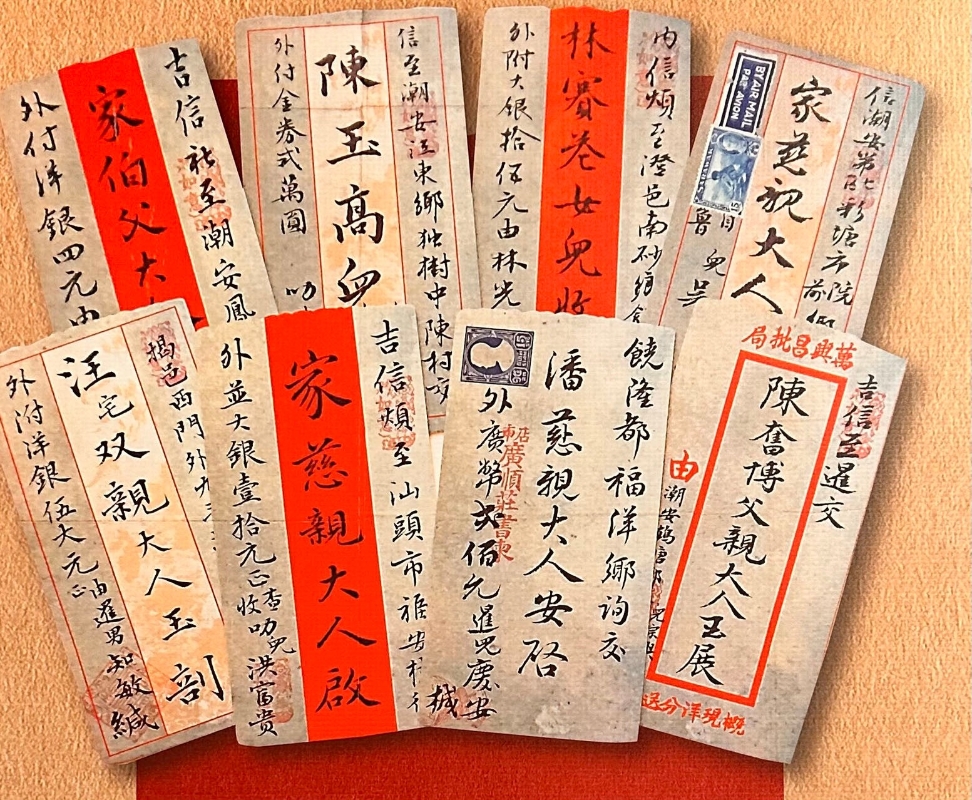 吉信社至潮安鳳
家伯父大人
外付洋銀四元由
信至潮安江東鄉独樹中陳村交
陳玉高兒
外付金券弍萬圓
叻
内信煩至澄邑南砂鄉
林賽卷女兒收
外附大銀拾伍元由林光
信潮安第七區彩塘市院前鄉
家慈親大人
BY AIR MAIL
PAR AVION
兒吳
揭邑西門外
汪宅双親大人玉剖
外附洋銀伍大元正
由暹男知敏緘
吉信煩至汕頭市
家慈親大人啟
外並大銀壹拾元正查收叻兒洪富贵
饒隆都福洋鄉詢交
潘慈親大人安啓
外廣幣弍佰元暹兒慶安
緘
廣順莊書柬
萬興昌批局
吉信至暹交
陳奮博父親大人玉展
由潮安鶴塘
概現洋分送